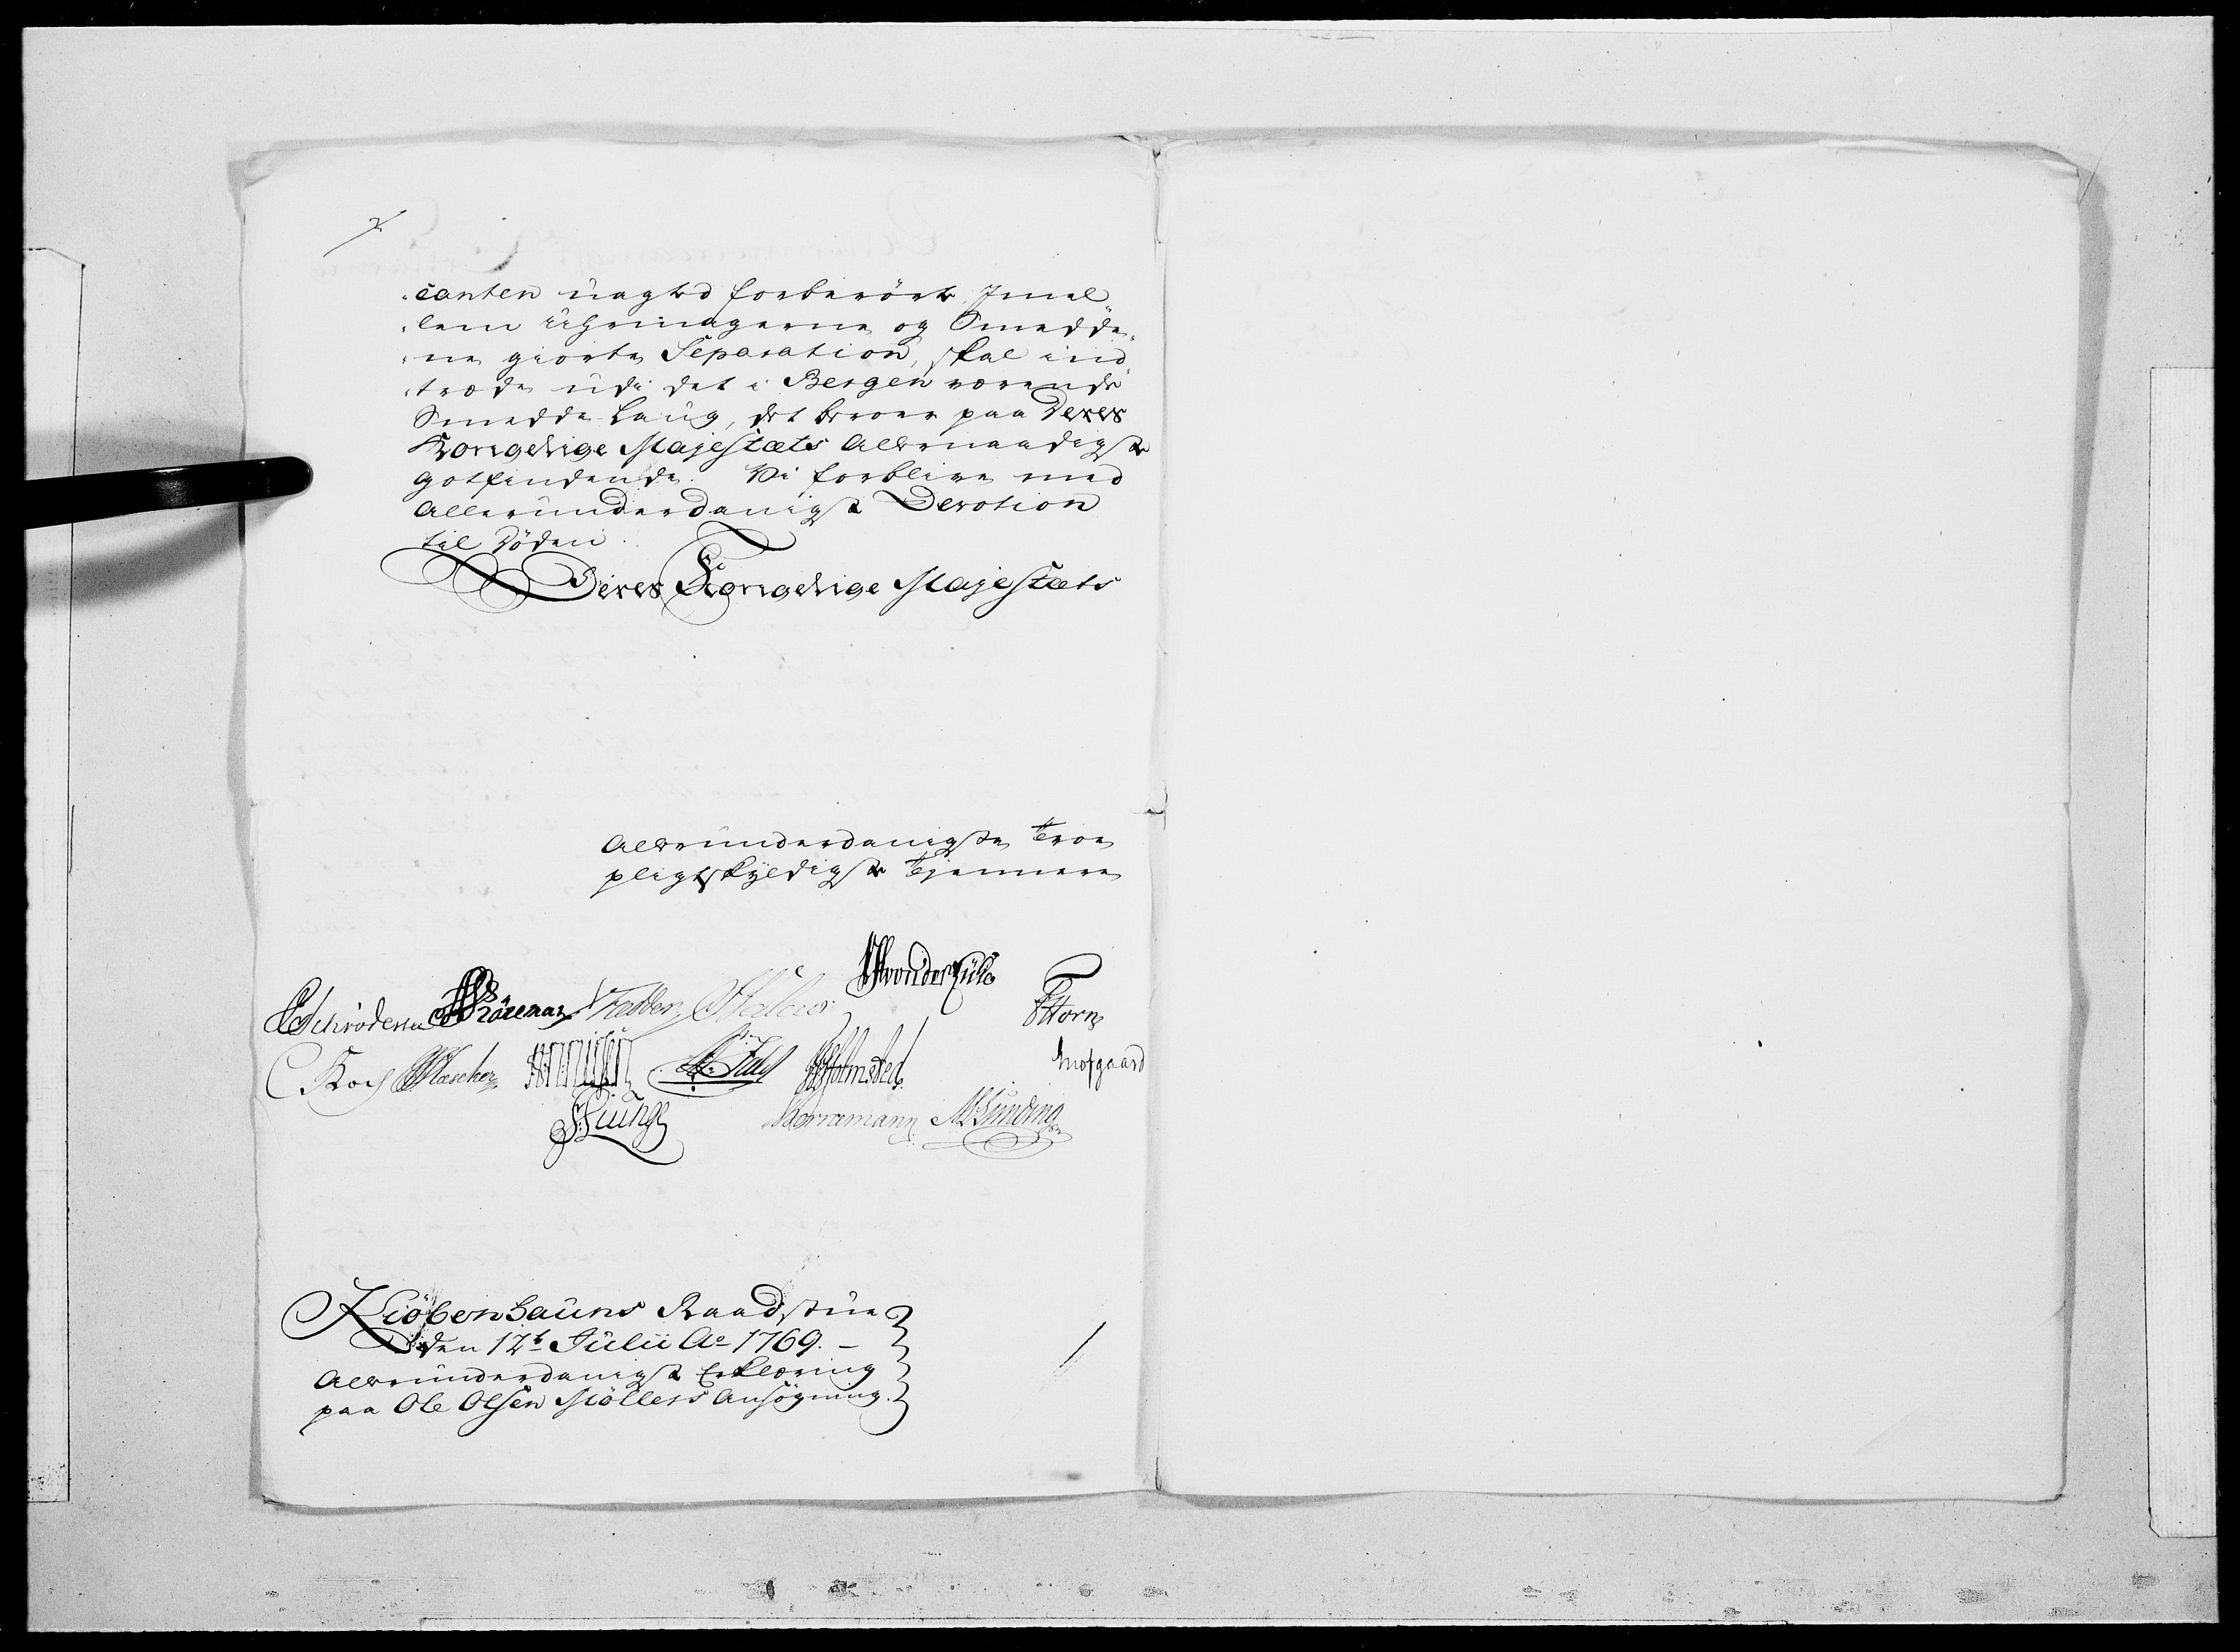 "canten uagted forberörte Imel
"lem Uhrmagerne og Smedde
"ne giorte Separation, skal ind
"træde udi det i Bergen værende
Smedde Laug, det beroer paa Deres
Kongelige Majestæts Allernaadigste
gotfindende. Vi forblive med
Allerunderdanigst Devotion
til Döden.
Deres Kongelige Majestæts
Allerunderdanigste Troe
pligtskyldigste Tjennere
Schrödersee Fædder
Horn
Koch Mascher Fals Holmsted
Junge M. Sunding
Kiöbenhauns Raadstue
den 12t Julii Ao 1769.-
Allerunderdanigst Erklæring
paa Ole Olsen Möllers Ansögning.